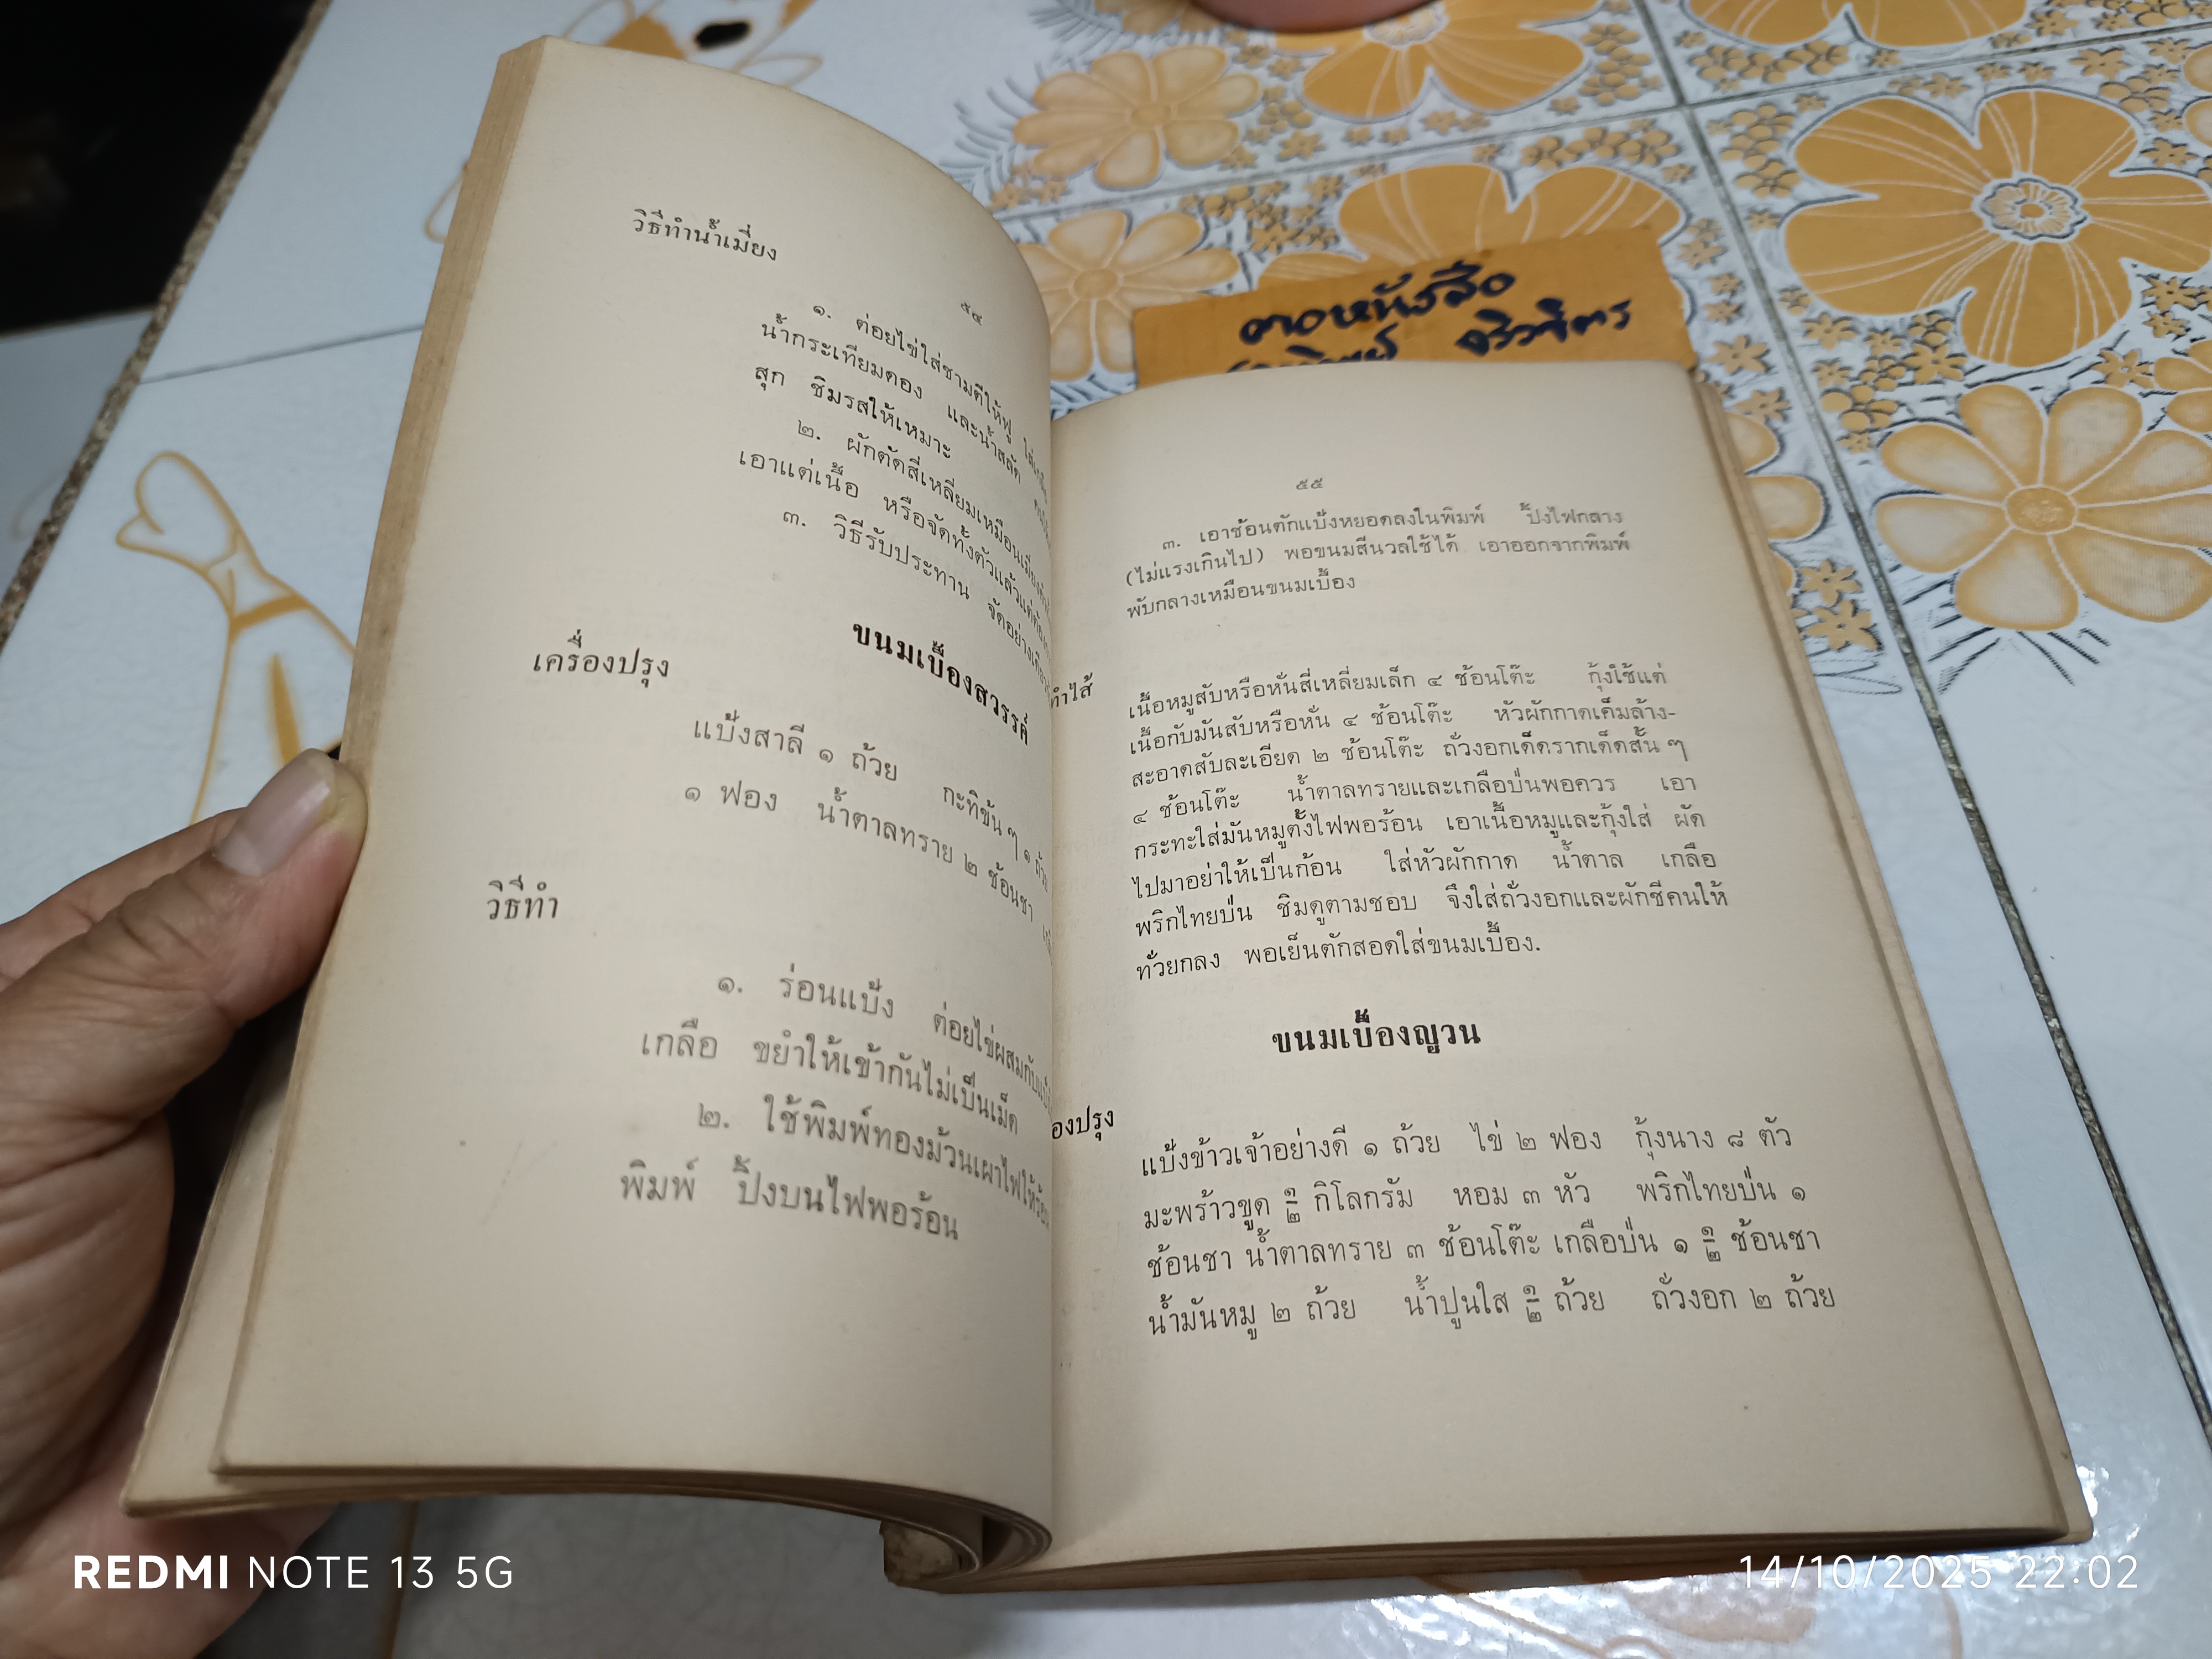 ๕๔
วิธีทำน้ำเมี่ยง
๑. ต่อยไข่ใส่ชามตีให้ฟู
น้ำกระเทียมดอง และน้ำสลัด
สุก ชิมรสให้เหมาะ
๒. ผักตัดสี่เหลี่ยมเหมือนเมี่ยง
เอาแต่เนื้อ หรือจัดทั้งตัวแล้วแต่
๓. วิธีรับประทาน จัดอย่าง
ขนมเบื้องสวรรค์
เครื่องปรุง
แป้งสาลี ๑ ถ้วย กะทิข้น ๆ ๑ ถ้วย
๑ ฟอง น้ำตาลทราย ๒ ช้อนชา
วิธีทำ
๑. ร่อนแป้ง ต่อยไข่ผสมกับแป้ง
เกลือ ขยำให้เข้ากันไม่เป็นเม็ด
๒. ใช้พิมพ์ทองม้วนเผาไฟให้ร้อน
พิมพ์ ปิ้งบนไฟพอร้อน
ดาวหนังสือ
๕๕
๓. เอาช้อนตักแป้งหยอดลงในพิมพ์ ปิ้งไฟกลาง
(ไม่แรงเกินไป) พอขนมสีนวลใช้ได้ เอาออกจากพิมพ์
พับกลางเหมือนขนมเบื้อง
ทำไส้
เนื้อหมูสับหรือหั่นสี่เหลี่ยมเล็ก ๔ ช้อนโต๊ะ กุ้งใช้แต่
เนื้อกับมันสับหรือหั่น ๔ ช้อนโต๊ะ หัวผักกาดเค็มล้าง-
สะอาดสับละเอียด ๒ ช้อนโต๊ะ ถั่วงอกเด็ดรากเด็ดสั้น ๆ
๔ ช้อนโต๊ะ น้ำตาลทรายและเกลือป่นพอควร เอา
กระทะใส่มันหมูตั้งไฟพอร้อน เอาเนื้อหมูและกุ้งใส่ ผัด
ไปมาอย่าให้เป็นก้อน ใส่หัวผักกาด น้ำตาล เกลือ
พริกไทยป่น ชิมดูตามชอบ จึงใส่ถั่วงอกและผักชีคนให้
ทั่วยกลง พอเย็นตักสอดใส่ขนมเบื้อง.
ขนมเบื้องญวน
องปรุง
แป้งข้าวเจ้าอย่างดี ๑ ถ้วย ไข่ ๒ ฟอง กุ้งนาง ๘ ตัว
มะพร้าวขูด ๑/๒ กิโลกรัม หอม ๓ หัว พริกไทยป่น ๑
ช้อนชา น้ำตาลทราย ๓ ช้อนโต๊ะ เกลือป่น ๑ ๑/๒ ช้อนชา
น้ำมันหมู ๒ ถ้วย น้ำปูนใส ๑/๒ ถ้วย ถั่วงอก ๒ ถ้วย
REDMI NOTE 13 5G
14/10/2025 22:02